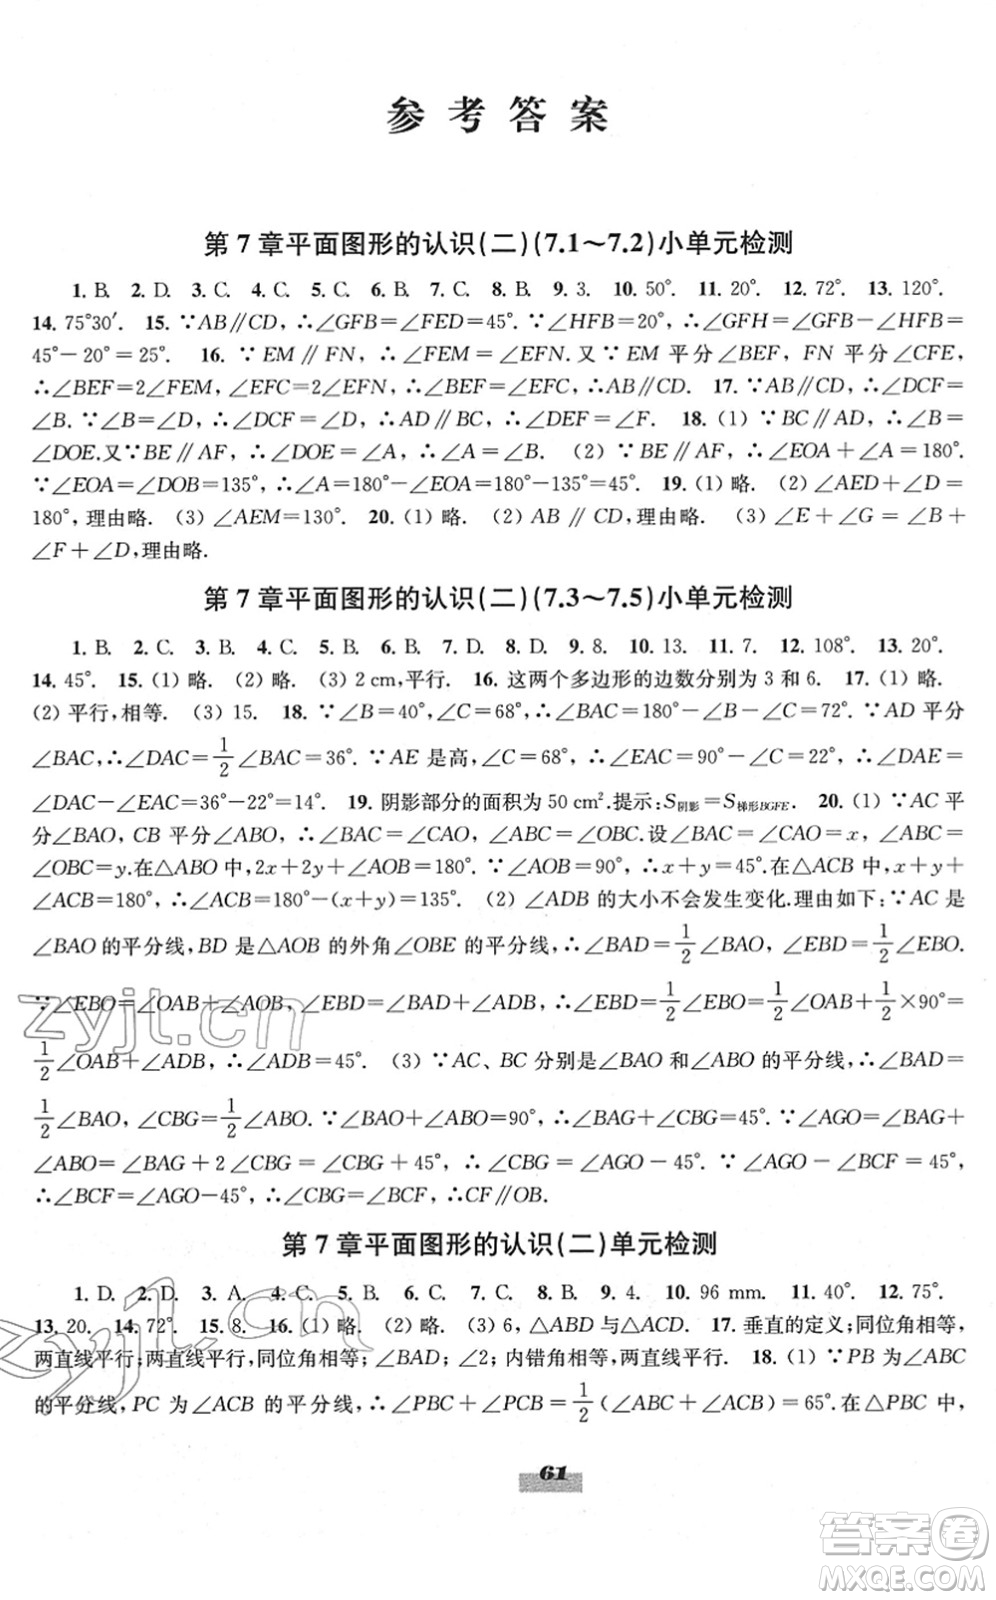 参考答案
第7章平面图形的认识(二)(7.1～7.2)小单元检测
1. B. 2. D. 3. C. 4. C. 5. C. 6. B. 7. C. 8. B. 9. 3. 10. 50°. 11. 20°. 12. 72°. 13. 120°.
14. 75°30′. 15. ∵AB∥CD,∴∠GFB=∠FED=45°.∵∠HFB=20°,∴∠GFH=∠GFB-∠HFB=
45°-20°=25°. 16. ∵EM∥FN,∴∠FEM=∠EFN.又∵EM平分∠BEF, FN平分∠CFE,
∴∠BEF=2∠FEM,∠EFC=2∠EFN,∴∠BEF=∠EFC,∴AB∥CD. 17. ∵AB∥CD,∴∠DCF=
∠B.∵∠B=∠D,∴∠DCF=∠D,∴AD∥BC,∴∠DEF=∠F. 18. (1) ∵BC∥AD,∴∠B=
∠DOE.又∵BE∥AF,∴∠DOE=∠A,∴∠A=∠B. (2) ∵BE∥AF,∴∠EOA+∠A=180°.
∵∠EOA=∠DOB=135°,∴∠A=180°-∠EOA=180°-135°=45°. 19. (1) 略. (2) ∠AED+∠D=
180°,理由略. (3) ∠AEM=130°. 20. (1) 略. (2) AB∥CD,理由略. (3) ∠E+∠G=∠B+
∠F+∠D,理由略.
第7章平面图形的认识(二)(7.3～7.5)小单元检测
1. B. 2. C. 3. C. 4. C. 5. B. 6. B. 7. D. 8. D. 9. 8. 10. 13. 11. 7. 12. 108°. 13. 20°.
14. 45°. 15. (1) 略. (2) 略. (3) 2 cm,平行. 16. 这两个多边形的边数分别为3和6. 17. (1) 略.
(2) 平行,相等. (3) 15. 18. ∵∠B=40°,∠C=68°,∴∠BAC=180°-∠B-∠C=72°.∵AD平分
∠BAC,∴∠DAC=1/2∠BAC=36°.∵AE是高,∠C=68°,∴∠EAC=90°-∠C=22°,∴∠DAE=
∠DAC-∠EAC=36°-22°=14°. 19. 阴影部分的面积为50 cm².提示:S阴影=S梯形BGFE. 20. (1) ∵AC平
分∠BAO, CB平分∠ABO,∴∠BAC=∠CAO,∠ABC=∠OBC.设∠BAC=∠CAO=x,∠ABC=
∠OBC=y.在△ABO中,2x+2y+∠AOB=180°.∵∠AOB=90°,∴x+y=45°.在△ABC中,x+y+
∠ACB=180°,∴∠ACB=180°-(x+y)=135°. (2) ∠ADB的大小不会发生变化.理由如下:∵AC是
∠BAO的平分线,BD是△AOB的外角∠OBE的平分线,∴∠BAD=1/2∠BAO,∠EBD=1/2∠EBO.
∵∠EBO=∠OAB+∠AOB,∠EBD=∠BAD+∠ADB,∴∠EBD=1/2∠EBO=1/2∠OAB+1/2×90°=
1/2∠OAB+∠ADB,∴∠ADB=45°. (3) ∵AC、BC分别是∠BAO和∠ABO的平分线,∴∠BAD=
1/2∠BAO,∠CBG=1/2∠ABO.∵∠BAO+∠ABO=90°,∴∠BAG+∠CBG=45°.∵∠AGO=∠BAG+
∠ABO=∠BAG+2∠CBG=∠CBG+45°,∴∠CBG=∠AGO-45°.∵∠AGO-∠BCF=45°,
∴∠BCF=∠AGO-45°,∴∠CBG=∠BCF,∴CF∥OB.
第7章平面图形的认识(二)单元检测
1. D. 2. D. 3. A. 4. C. 5. B. 6. C. 7. C. 8. B. 9. 4. 10. 96 mm. 11. 40°. 12. 75°.
13. 20. 14. 72°. 15. 8. 16. (1) 略. (2) 略. (3) 6,△ABD与△ACD. 17. 垂直的定义;同位角相等,
两直线平行;两直线平行,同位角相等;∠BAD;∠2;内错角相等,两直线平行. 18. (1) ∵PB为∠ABC
的平分线,PC为∠ACB的平分线,∴∠PBC+∠PCB=1/2(∠ABC+∠ACB)=65°.在△PBC中,
61
zyjt.cn
zyjt.cn
答案卷
MXQE.COM